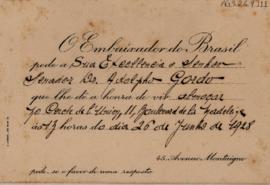 O Embaixador do Brasil
pede a Sua Excellencia o Senhor
Senador Dr. Adolpho Gordo
que lhe dê a honra de vir almoçar
no Cercle de l'Union, 11, Boulevard de la Madeleine
às 13 horas do dia 20 de Junho de 1928
45, Avenue Montaigne
pede-se o favor de uma resposta